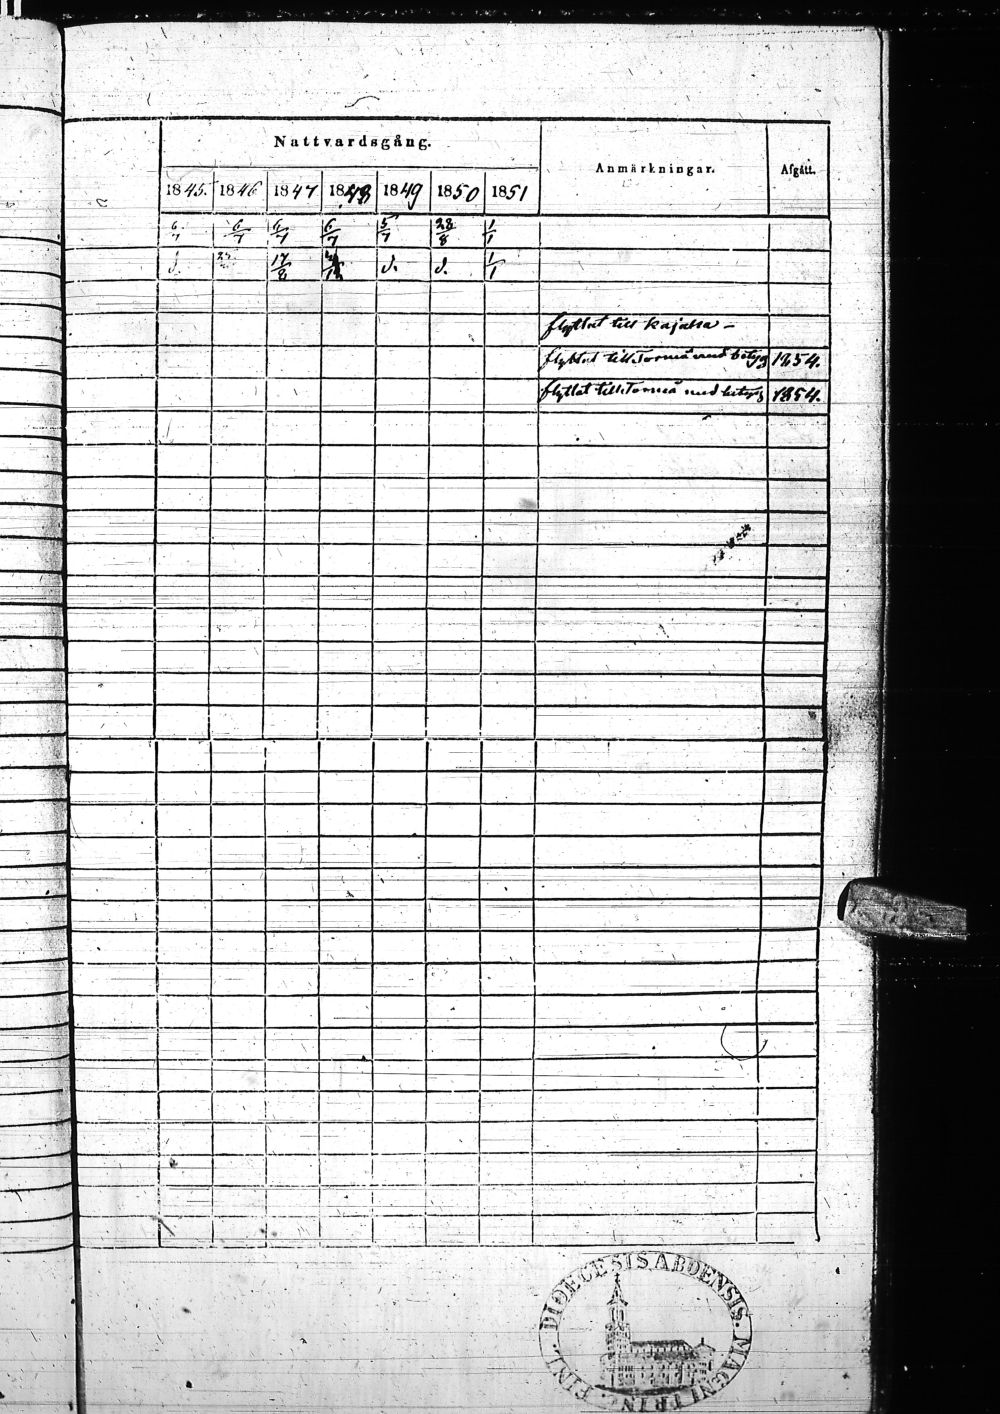 Nattvardsgång.
Anmärkningar.
Afgått.
1845. 1846 1847 1848 1849 1850 1851
6/7 6/7 6/7 6/7 5/7 28/8 1/1
d. 17/8 d. d. 1/1
flyttat till Kajala –
flyttat till Tormä med betyg 1854.
flyttat till Tormä med betyg 1854.
DIOECESIS ABOENSIS. MAGNI PRINC. FINL.